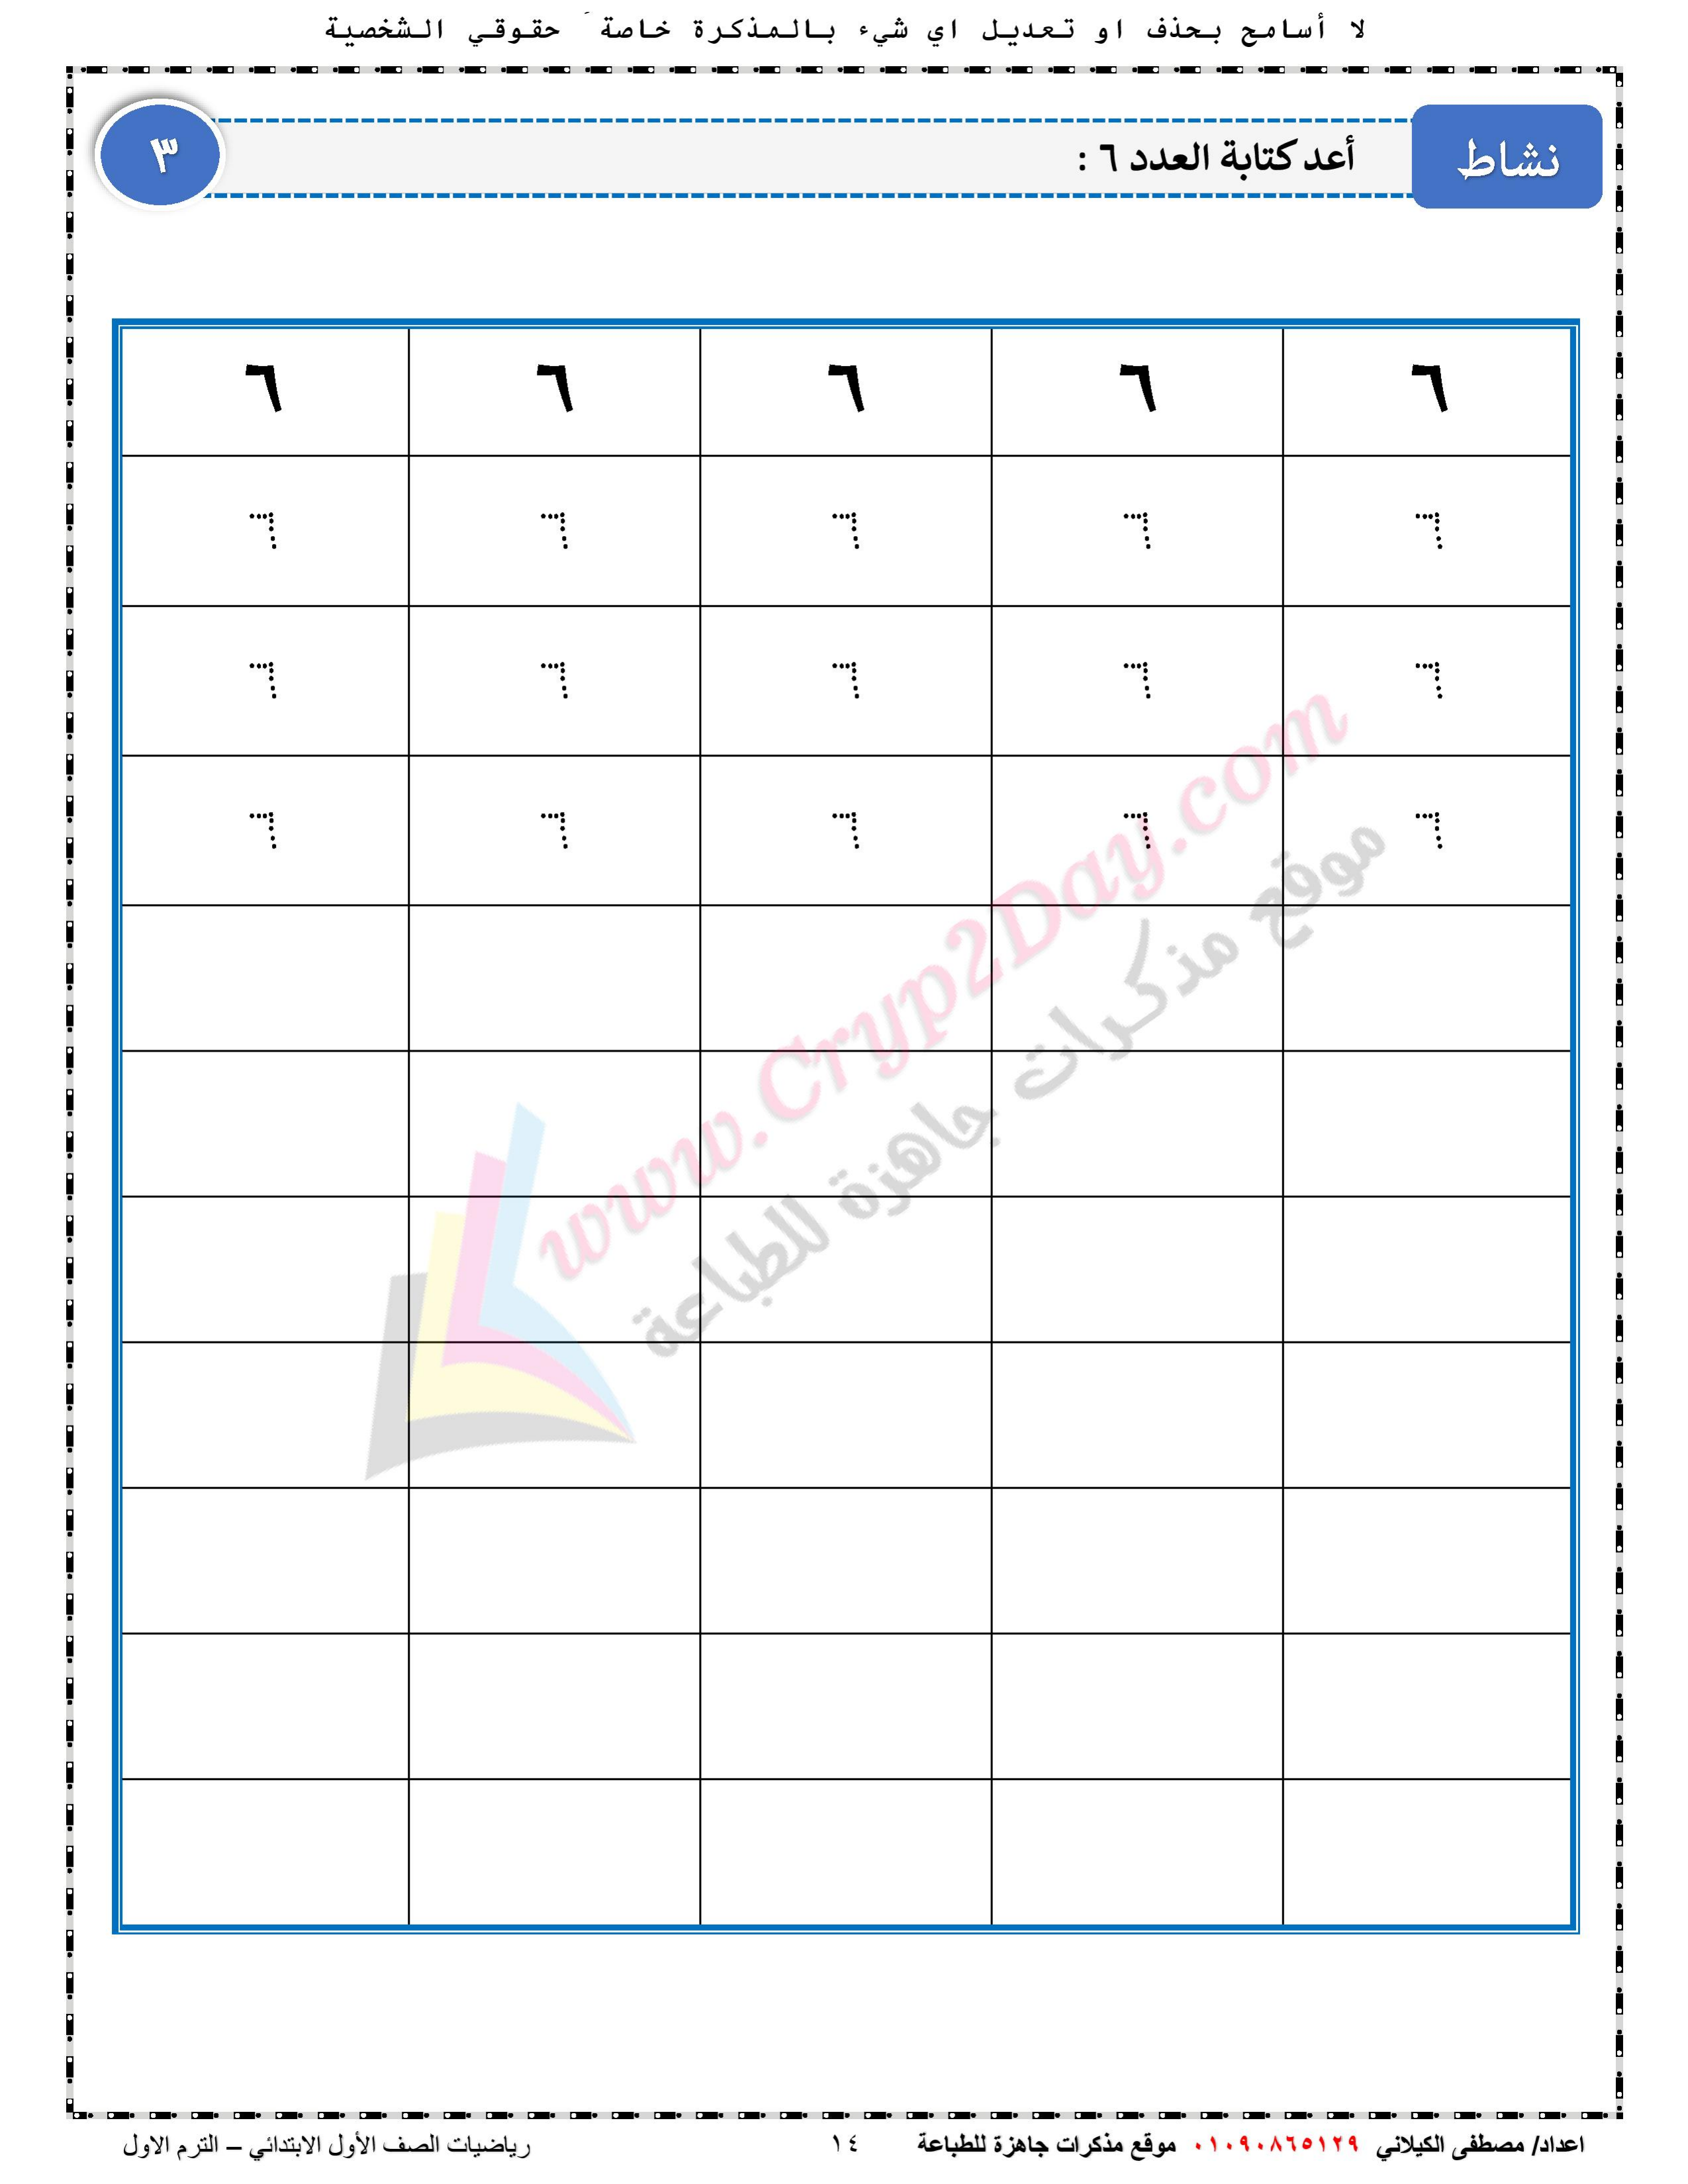 لا أسامح بحذف او تعديل اي شيء بالمذكرة خاصةَ حقوقي الشخصية
نشاط
أعد كتابة العدد ٦ :
٣
٦ ٦ ٦ ٦ ٦
٦ ٦ ٦ ٦ ٦
٦ ٦ ٦ ٦ ٦
٦ ٦ ٦ ٦ ٦
www.Cryp2Day.com
موقع مذكرات جاهزة للطباعة
اعداد/ مصطفى الكيلاني ٠١٠٩٠٨٦٥١٢٩ موقع مذكرات جاهزة للطباعة ١٤ رياضيات الصف الأول الابتدائي – الترم الاول